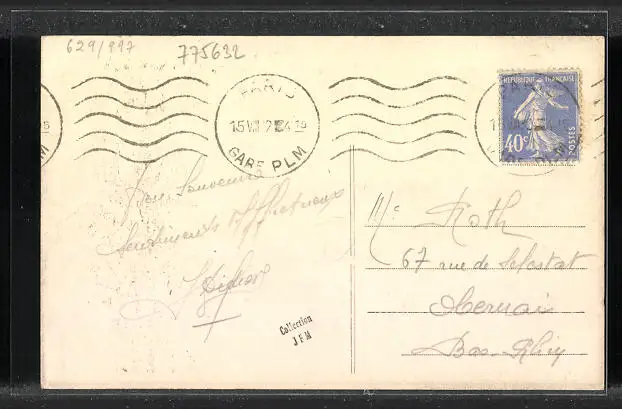 629/997
775632
PARIS
GARE PLM
REPUBLIQUE FRANÇAISE
40c
POSTES
Bon Souvenir
Sentiments Affectueux
Collection
JFM
Mlle Roth
67 rue de Selestat
Obernai
Bas-Rhin